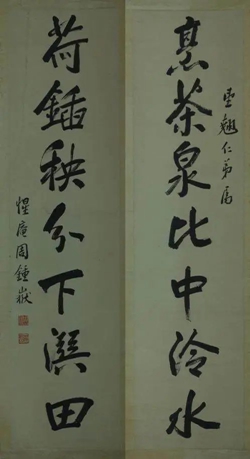 烹茶泉比中泠水
翹仁弟屬
荷鍤秧分下潠田
惺庵周鍾嶽